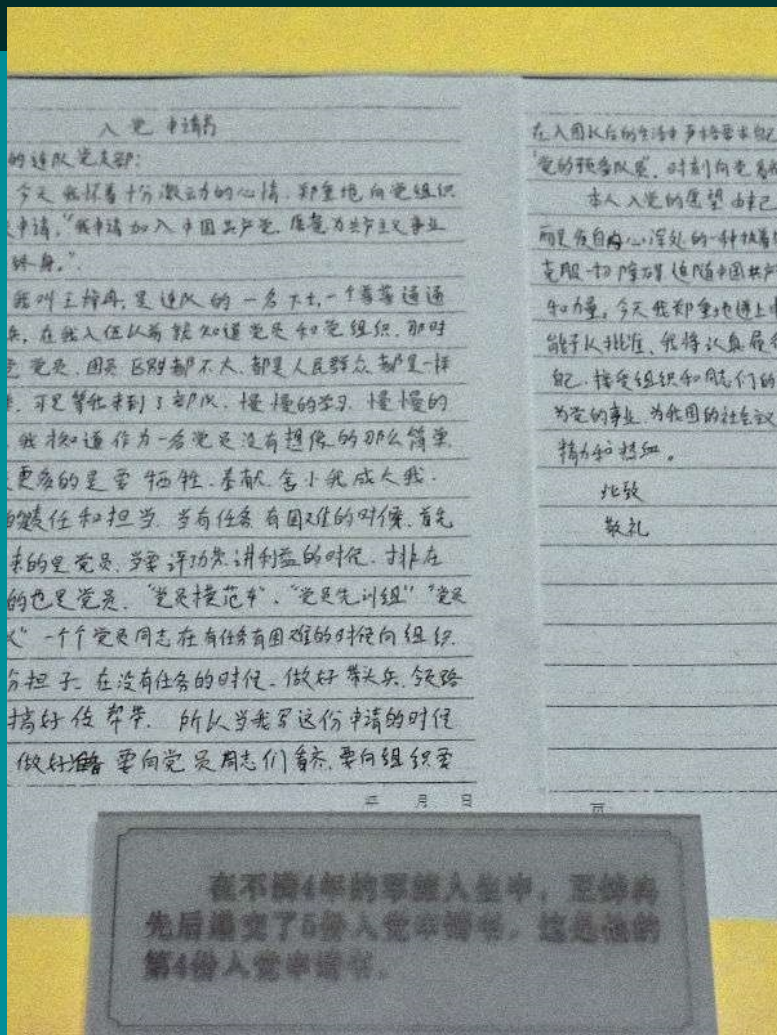 入党申请书
的连队党支部：
今天我怀着十分激动的心情，郑重地向党组织
申请，“我申请加入中国共产党，愿意为共产主义事业
终身。”
我叫王焯冉，是连队的一名下士，一个普普通通
兵，在我入伍以前就知道党员和党组织，那时
党员、团员区别都不大，都是人民群众都是一样
，可是等我来到了部队，慢慢的学习，慢慢的
，我才知道作为一名党员没有想像的那么简单，
更多的是要牺牲、奉献、舍小我成大我。
的责任和担当，当有任务有困难的时候，首先
来的是党员，当要评功先讲利益的时候，才排在
的也是党员，“党员模范车”、“党员先训组”“党员
”一个个党员同志在有任务有困难的时候向组织
担子，在没有任务的时候，做好带头兵、领路
搞好传帮带，所以当我写这份申请的时候
做好准备要向党员同志们看齐，要向组织要
年 月 日
在入团以后的生活中严格要求自己
“党的预备队员”，时刻向党看
本人入党的愿望由来已
而是发自内心深处的一种执着
克服一切障碍追随中国共产
和力量，今天我郑重地递上
能予以批准，我将认真履行
自己，接受组织和同志们的
为党的事业，为我国的社会主义
精力和热血。
此致
敬礼
页
在不满4年的军旅人生中，王焯冉
先后递交了5份入党申请书，这是他的
第4份入党申请书。